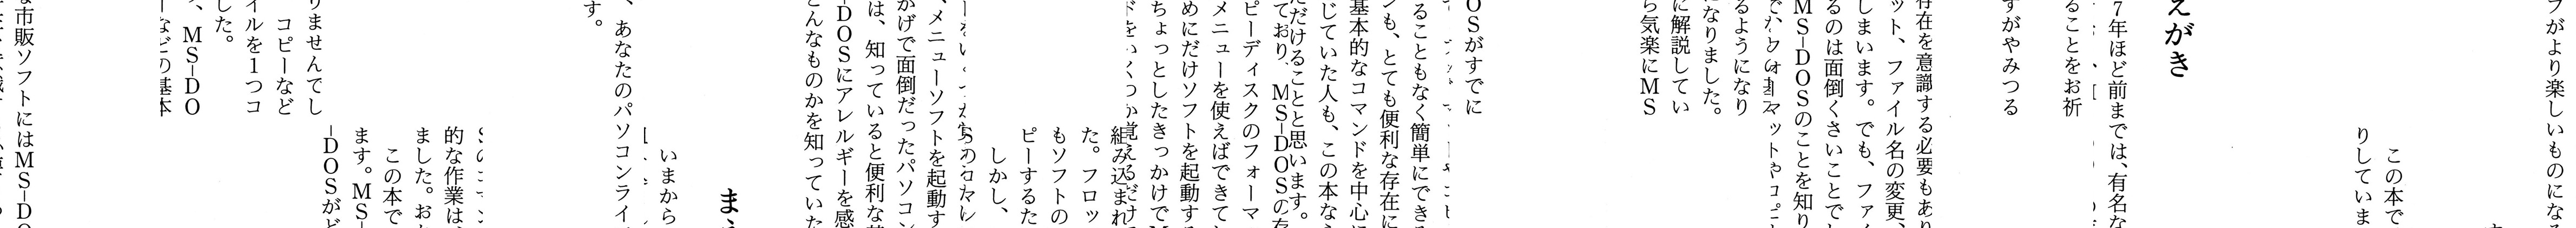 フがより楽しいものになる
この本で
りしていま
えがき
7年ほど前までは、有名な
ることをお祈
すがやみつる
存在を意識する必要もあり
ット、ファイル名の変更、
しまいます。でも、ファイ
るのは面倒くさいことでし
MS-DOSのことを知り
るようになり
になりました。
に解説してい
ら気楽にMS
OSがすでに
ることもなく簡単にでき
ンも、とても便利な存在に
基本的なコマンドを中心に
じていた人も、この本な
ただけることと思います。
ており、MS-DOSの存
ピーディスクのフォーマ
メニューを使えばできて
めにだけソフトを起動する
ちょっとしたきっかけでM
ドをいくつか覚えるだけ
組み込まれ
た。フロッ
もソフトの
ピーするた
しかし、
、メニューソフトを起動す
かげで面倒だったパソコン
は、知っていると便利な基
-DOSにアレルギーを感
どんなものかを知っていた
ま
いまから
、あなたのパソコンライ
す。
的な作業は、
ました。お
この本で
ます。MS-
-DOSがど
りませんでし
コピーなど
イルを1つコ
した。
、MS-DO
などの基本
な市販ソフトにはMS-DO